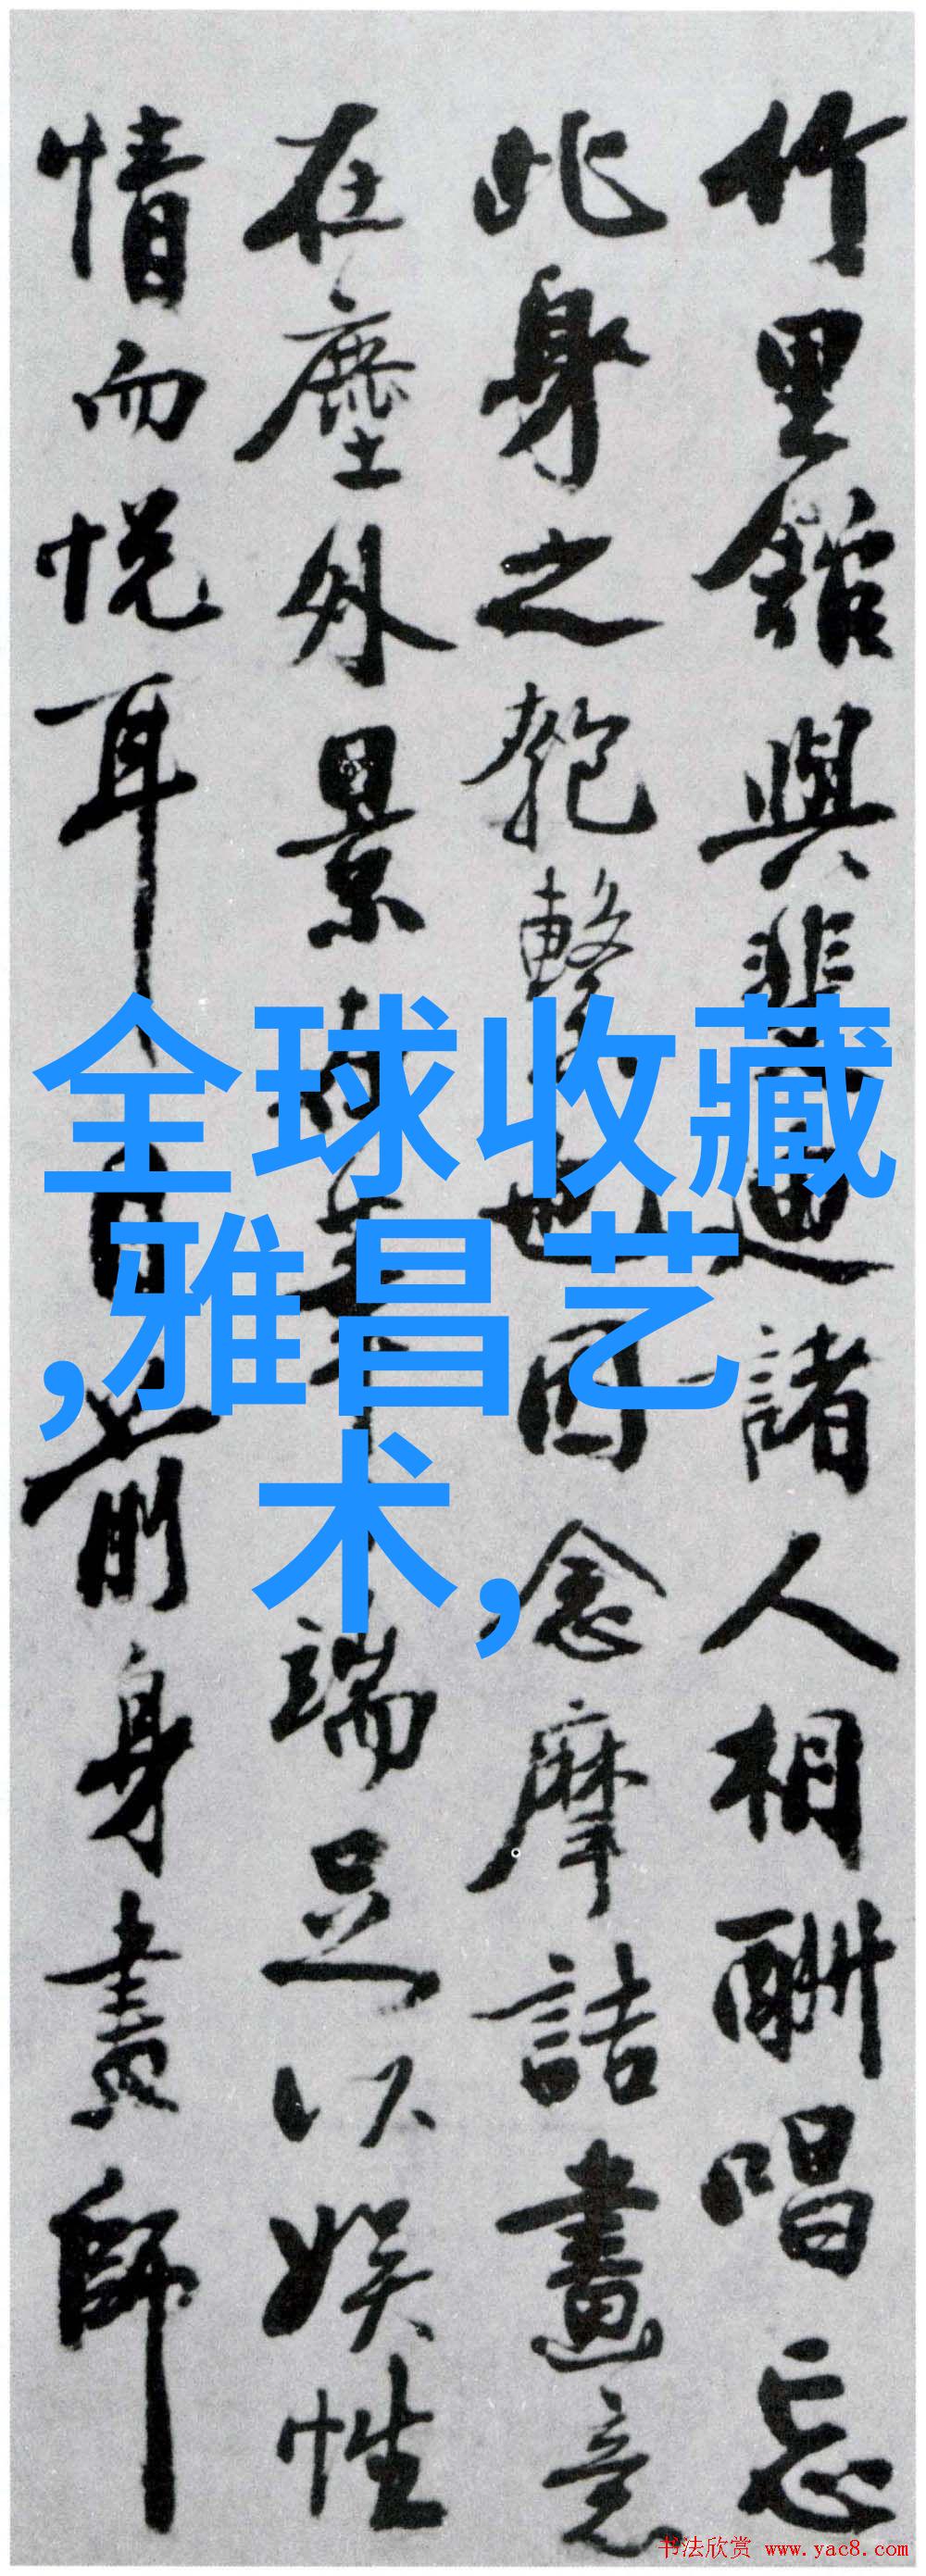 竹里館與裴迪諸人相酬唱忘
此身之匏繫也因念摩詰畫意
在塵外景在筆端足以娛性
情而悦耳目前身畫師
全球收藏
,雅昌艺
术,
书法欣赏 www.yac8.com